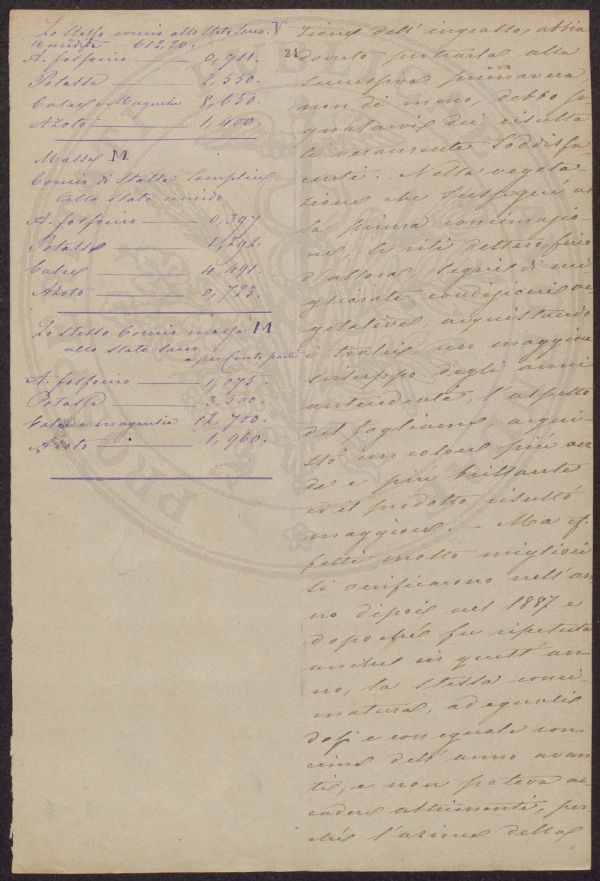 Lo stesso concio allo Stato Secco. V
umidità 612,20.
A. fosforico — 0,911.
Potassa — 2,550.
Calce e Magnesia 8,650.
Azoto — 1,400.
Massa M
Concio di Stalla Semplice
allo Stato umido
A. fosforico — 0,397
Potassa — 1,292.
Calce — 4,491.
Azoto — 0,723.
Lo stesso Concio massa M
allo stato secco
e per Cento parti
A. fosforico — 1,075.
Potassa — 3,500.
Calce e magnesia 12,700.
Azoto — 1,960.
21
zione dell'ingrasso, abbia
dovuto protrarla alla
successiva primavera,
non di meno, debbo se
gnalarvi dei risulta
ti veramente soddisfa
centi. Nella vegeta-
zione che susseguì al
la prima concimazio
ne, le viti dettero, fino
d'allora, segni di mi
gliorate condizioni ve
getative acquistando
i tralci un maggiore
sviluppo degli anni
antecedenti, l'aspetto
del fogliame acqui
stò un colore più ver
de e più brillante
ed il prodotto risultò
maggiore. - Ma ef
fetti molto migliori
si verificarono nell'an
no dipoi nel 1887 e
dopo chè fu ripetuta
anche in quell'an
no, la stessa conci-
matura, ad eguali
dosi e con eguale con
cime dell'anno avan
ti, e non poteva ac
cadere altrimenti, per
chè l'azione della